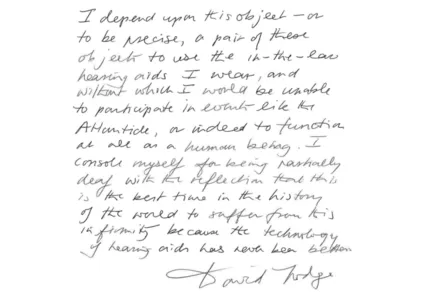 I depend upon this object – or
to be precise, a pair of these
objects to use the in-the-ear
hearing aids I wear, and
without which I would be unable
to participate in events like the
or indeed to function
at all as a human being. I
console myself for being partially
deaf with the reflection that this
is the best time in the history
of the world to suffer from this
infirmity because the technology
of hearing aids has never been better.
David Lodge